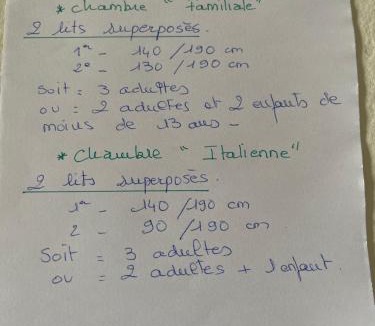 * Chambre "familiale"
2 lits superposés.
1er - 140 /190 cm
2e - 130 /190 cm
Soit = 3 adultes
ou = 2 adultes et 2 enfants de
moins de 13 ans -
* Chambre "Italienne"
2 lits superposés.
1er - 140 /190 cm
2 - 90 /190 cm
Soit = 3 adultes
ou = 2 adultes + 1 enfant.